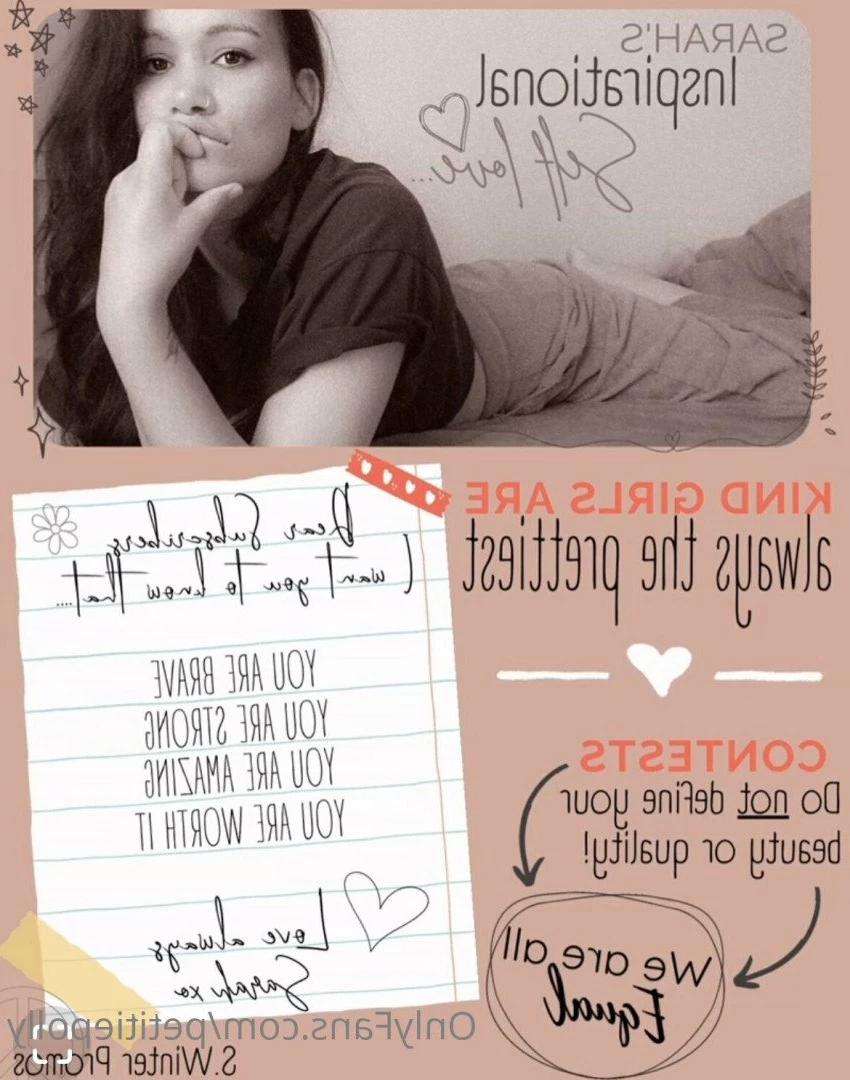 SARAH'S
Inspirational
Self love...
KIND GIRLS ARE
always the prettiest
CONTESTS
Do not define your
beauty or quality!
We are all
Equal
Dear Subscribers,
I want you to know that....
YOU ARE BRAVE
YOU ARE STRONG
YOU ARE AMAZING
YOU ARE WORTH IT
Love always
Sarah xo
OnlyFans.com/petitiepolly
S.Winter Promos